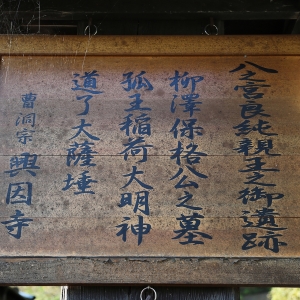 八之宮良純親王之御遺跡
柳澤保格公之墓
狐王稲荷大明神
道了大薩埵
曹洞宗 興因寺